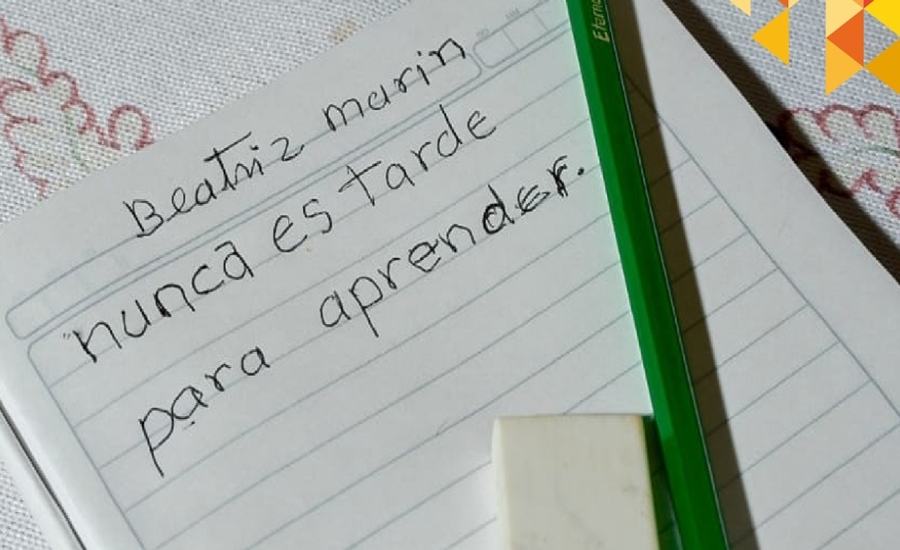 Beatriz marin
nunca es tarde
para aprender.
Eterna